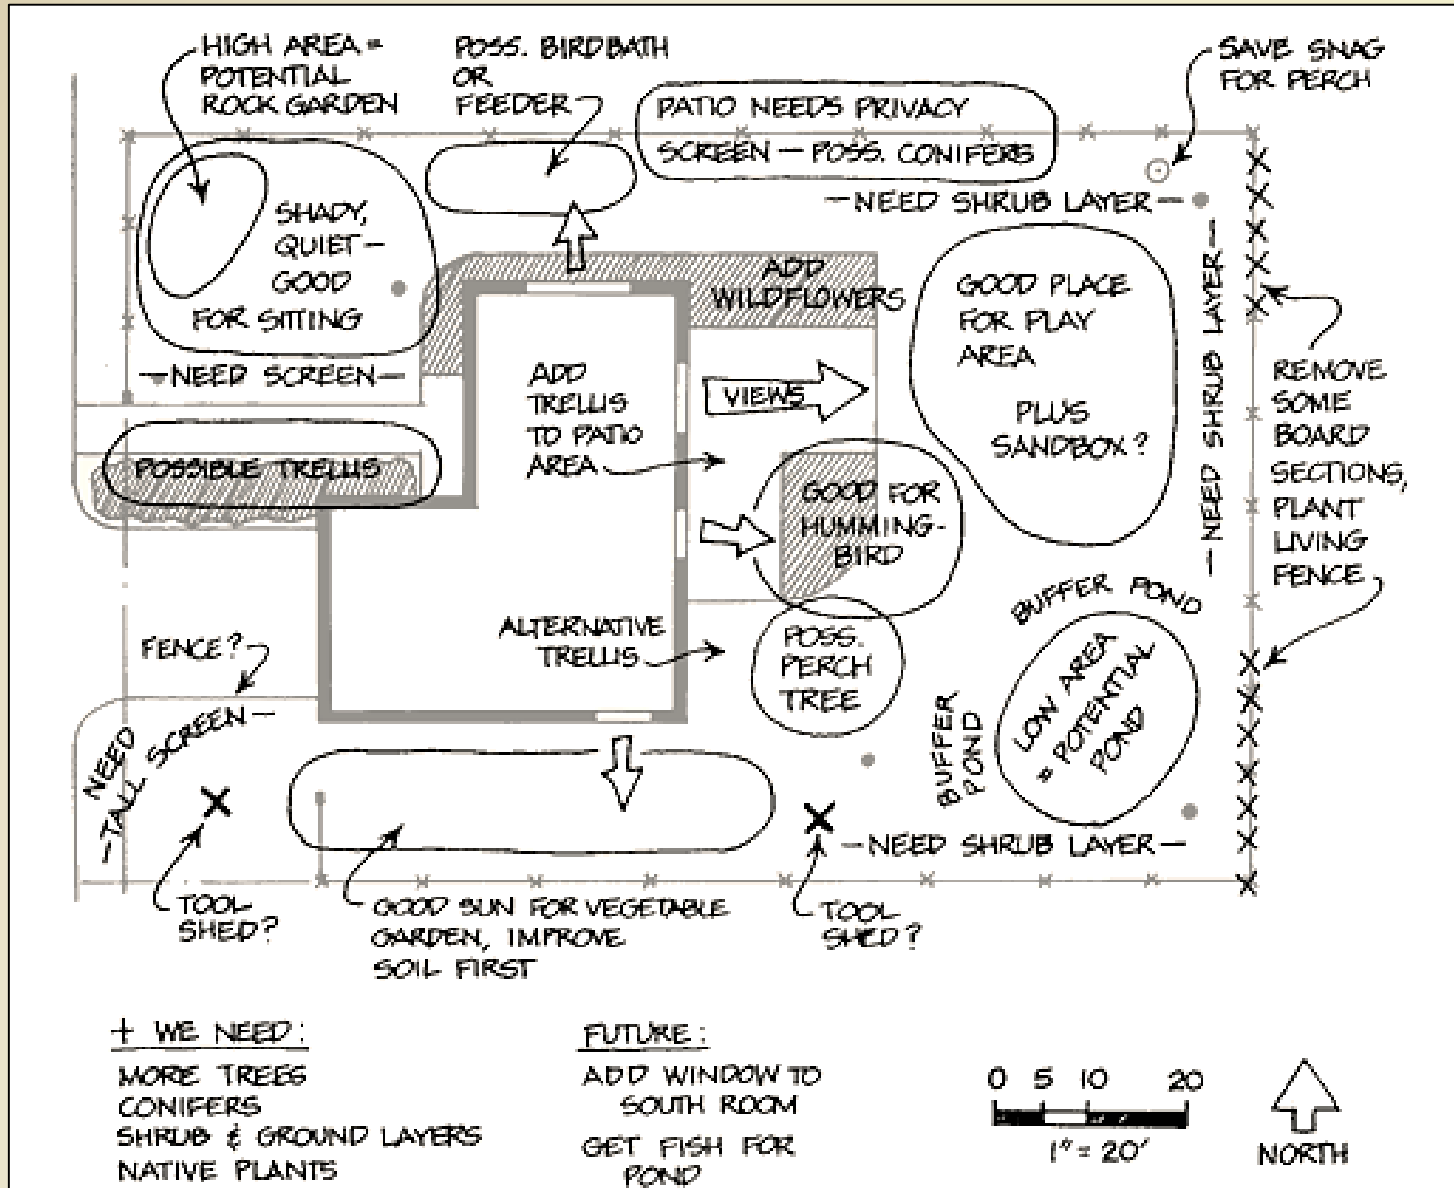 HIGH AREA =
POTENTIAL
ROCK GARDEN
POSS. BIRDBATH
OR
FEEDER
PATIO NEEDS PRIVACY
SCREEN — POSS. CONIFERS
SAVE SNAG
FOR PERCH
— NEED SHRUB LAYER —
SHADY,
QUIET —
GOOD
FOR SITTING
— NEED SCREEN —
ADD
WILDFLOWERS
GOOD PLACE
FOR PLAY
AREA
PLUS
SANDBOX?
— NEED SHRUB LAYER —
REMOVE
SOME
BOARD
SECTIONS,
PLANT
LIVING
FENCE
ADD
TRELLIS
TO PATIO
AREA
VIEWS
POSSIBLE TRELLIS
GOOD FOR
HUMMING-
BIRD
ALTERNATIVE
TRELLIS
POSS.
PERCH
TREE
BUFFER POND
LOW AREA
= POTENTIAL
POND
BUFFER
POND
FENCE?
NEED
— TALL SCREEN —
— NEED SHRUB LAYER —
TOOL
SHED?
GOOD SUN FOR VEGETABLE
GARDEN, IMPROVE
SOIL FIRST
TOOL
SHED?
+ WE NEED:
MORE TREES
CONIFERS
SHRUB & GROUND LAYERS
NATIVE PLANTS
FUTURE:
ADD WINDOW TO
SOUTH ROOM
GET FISH FOR
POND
0 5 10 20
1" = 20'
NORTH